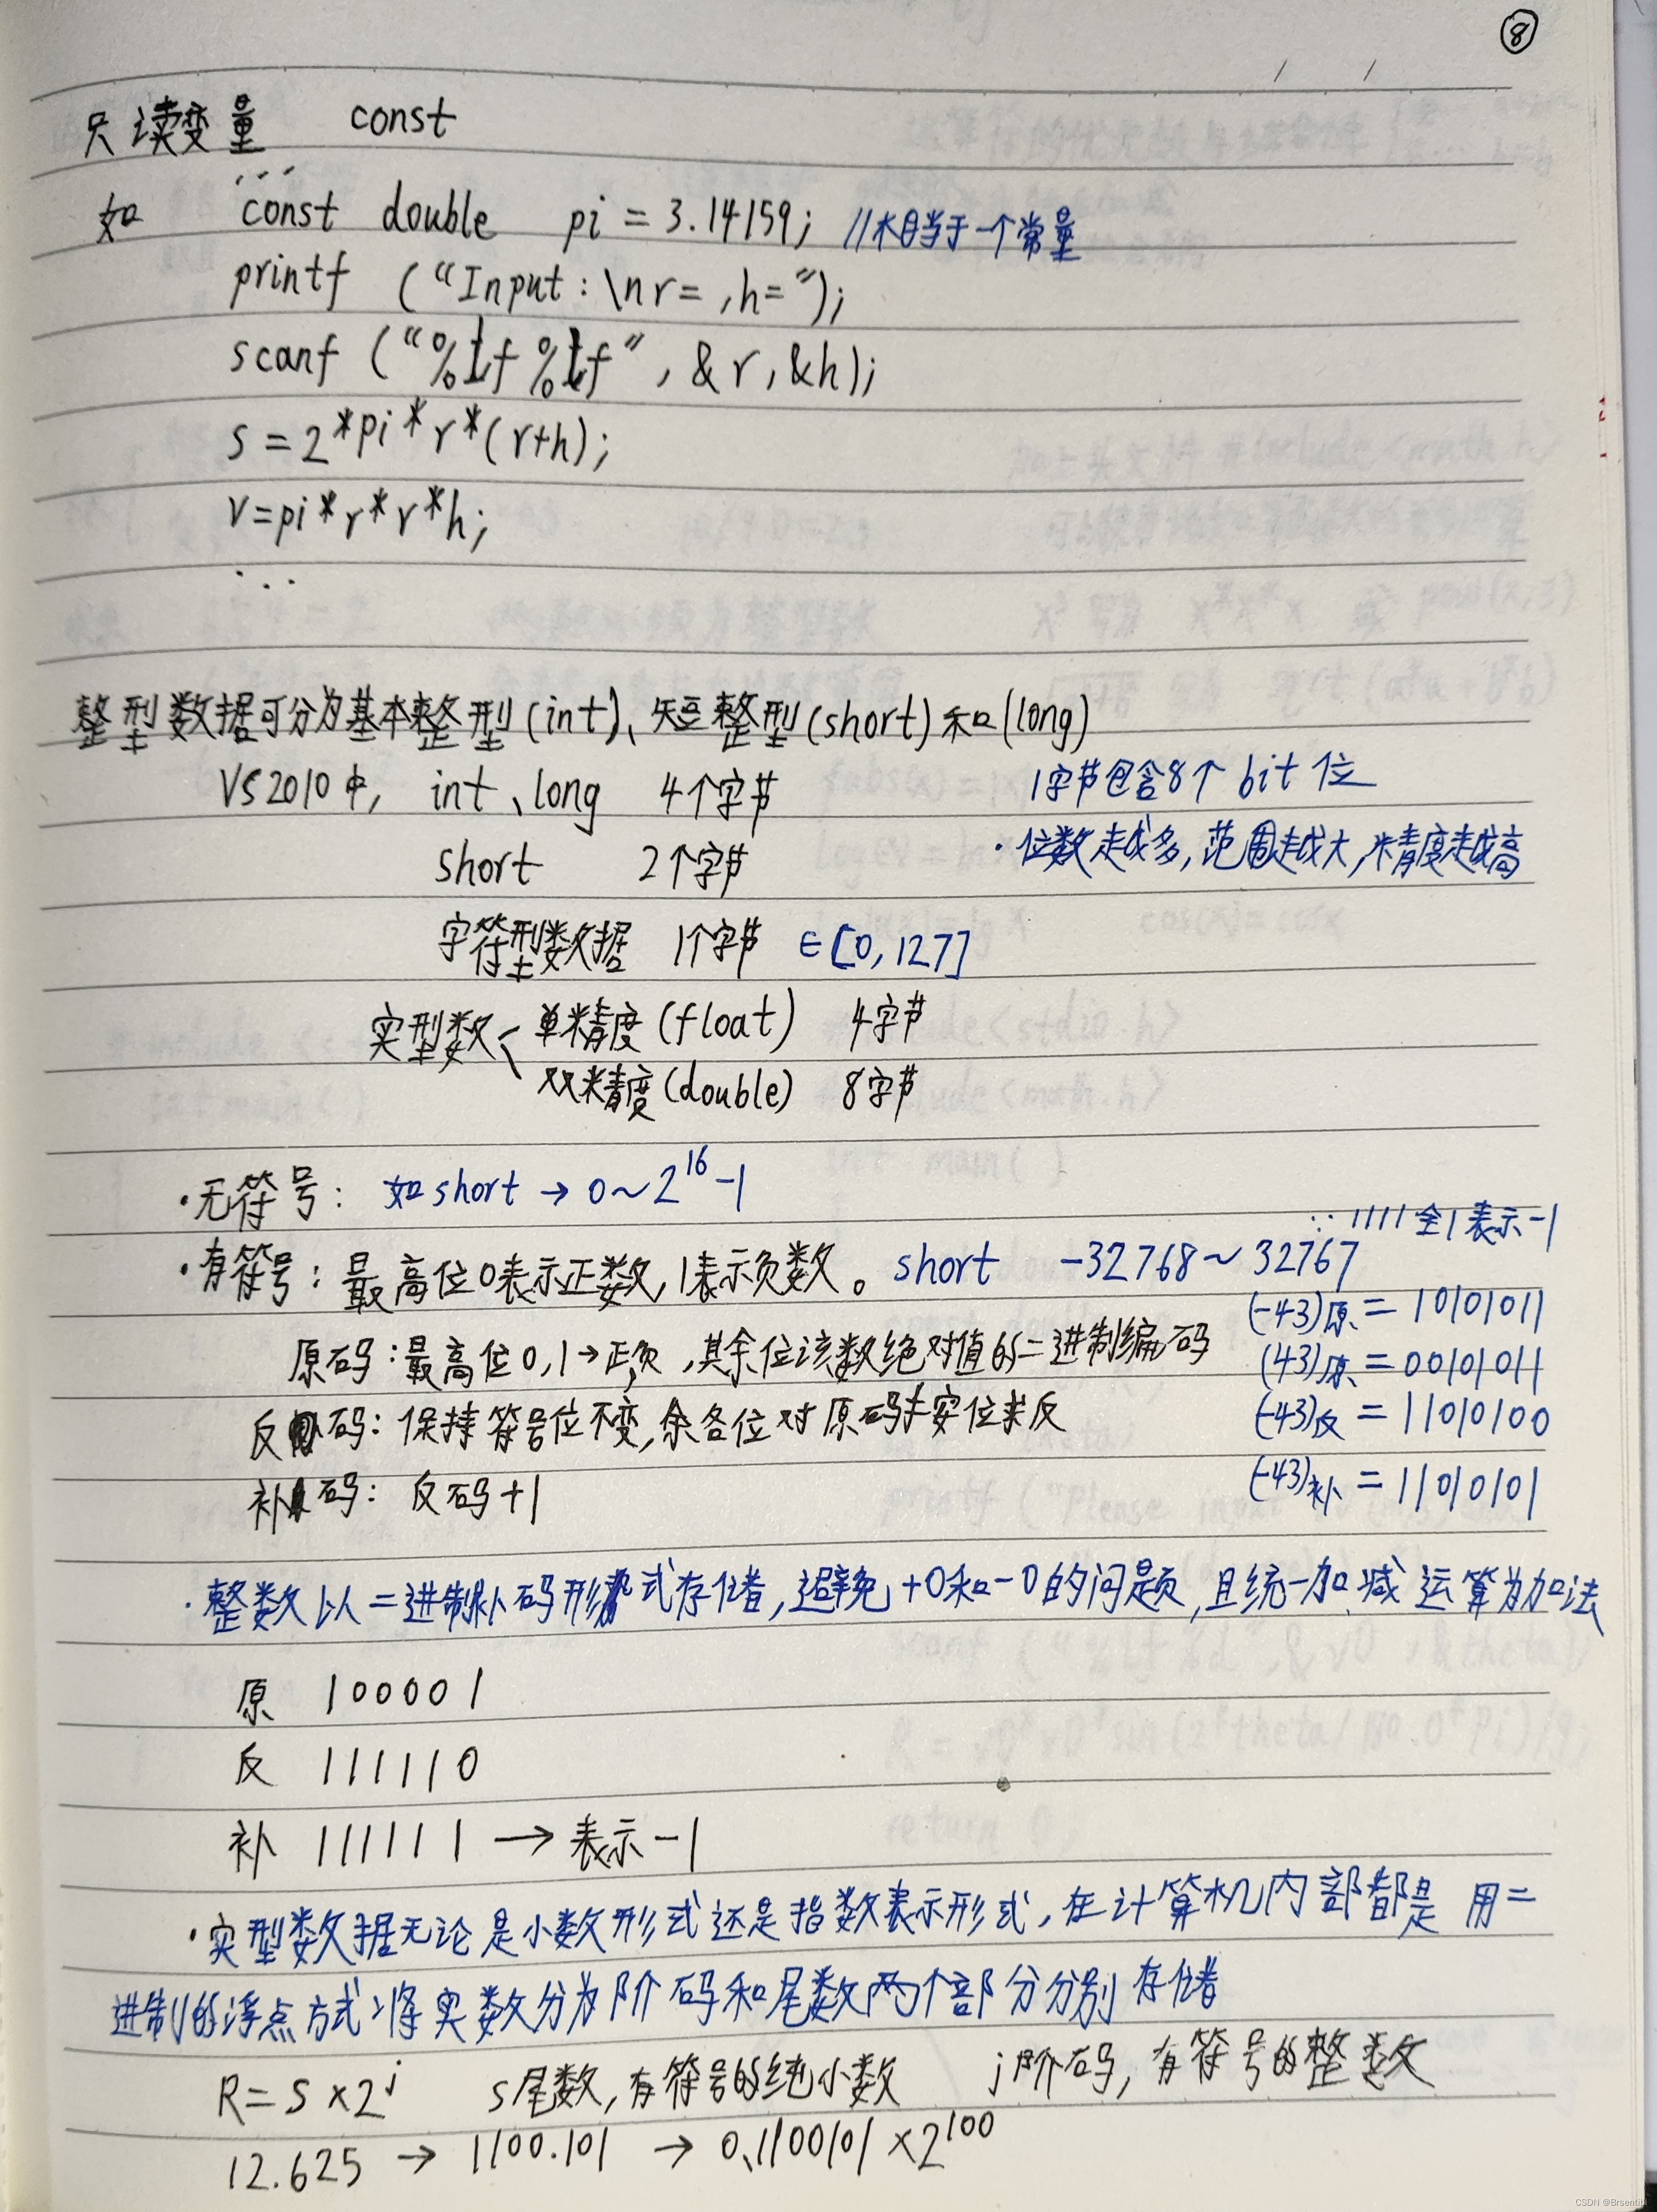 ⑧
只读变量 const
...
如 const double pi = 3.14159; //相当于一个常量
printf ("Input:\nr= ,h=");
scanf ("%lf%lf", &r, &h);
s = 2*pi*r*(r+h);
v=pi*r*r*h;
...
整型数据可分为基本整型(int)、短整型(short)和(long)
VS2010中, int、long 4个字节 1字节包含8个bit位
short 2个字节 ·位数越多,范围越大,精度越高
字符型数据 1个字节 ∈[0,127]
实型数< 单精度(float) 4字节
双精度(double) 8字节
·无符号: 如short → 0~2^16-1
∵1111全1表示-1
·有符号: 最高位0表示正数,1表示负数。short -32768~32767
(-43)原 = 10101011
原码:最高位0,1→正,负,其余位该数绝对值的二进制编码 (43)原 = 00101011
反码: 保持符号位不变,余各位对原码按位求反 (-43)反 = 11010100
补码: 反码+1 (-43)补 = 11010101
·整数以二进制补码形式存储,避免+0和-0的问题,且统一加、减运算为加法
原 100001
反 111110
补 111111 → 表示-1
·实型数据无论是小数形式还是指数表示形式,在计算机内部都是用二
进制的浮点方式将实数分为阶码和尾数两个部分分别存储
R=S×2^j s尾数,有符号的纯小数 j阶码,有符号的整数
12.625 → 1100.101 → 0.1100101×2^100
CSDN @Brsentibi